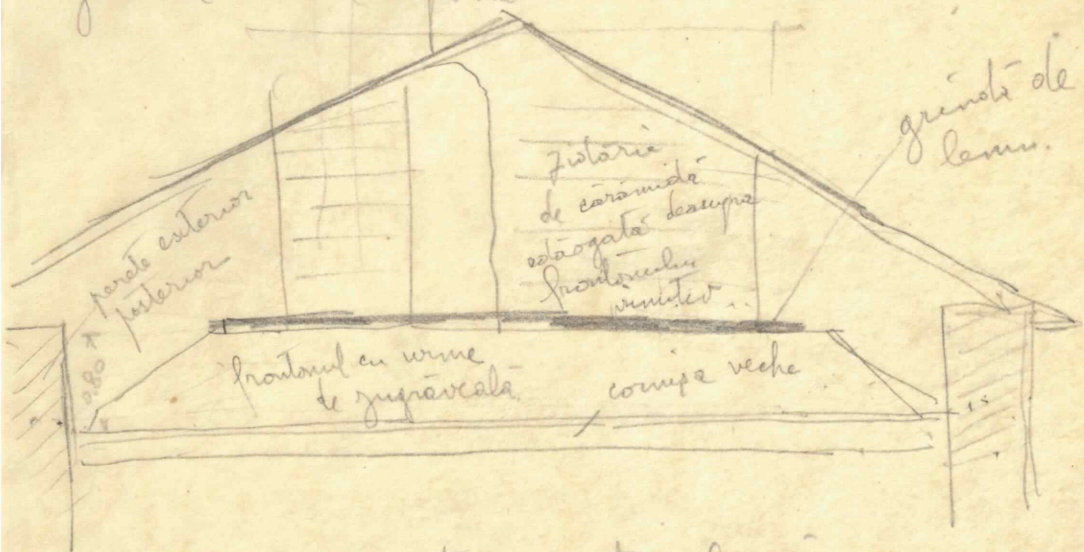 grindă de
lemn.
zidărie
de cărămidă
adăogată deasupra
frontonului
primitiv..
perete exterior
posterior
0.80
frontonul cu urme
de zugrăveală
cornișa veche